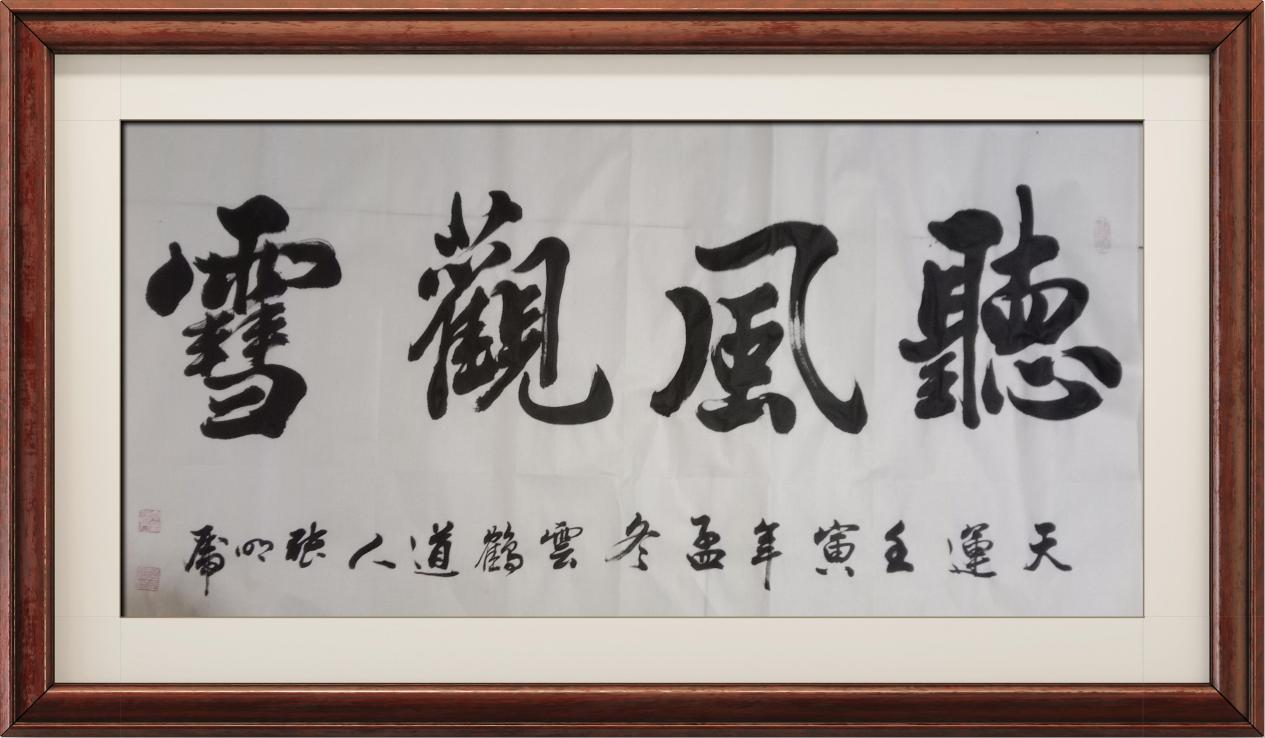 聽風觀雪
天運壬寅年孟冬雲鶴道人張明